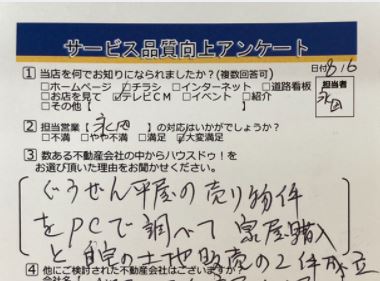 サービス品質向上アンケート
日付8,6
1 当店を何でお知りになられましたか?(複数回答可)
□ホームページ ☑チラシ □インターネット □道路看板
□お店を見て ☑テレビCM □イベント □紹介
□その他【 】
担当者
永田
2 担当営業【永田】の対応はいかがでしょうか?
□不満 □やや不満 □満足 ☑大変満足
3 数ある不動産会社の中からハウスドゥ!を
お選び頂いた理由をお聞かせください。
ぐうぜん平屋の売り物件
をPCで調べて 家屋購入
と 自宅の土地販売の2件成立
4 他にご検討された不動産会社はございますか?
会社名